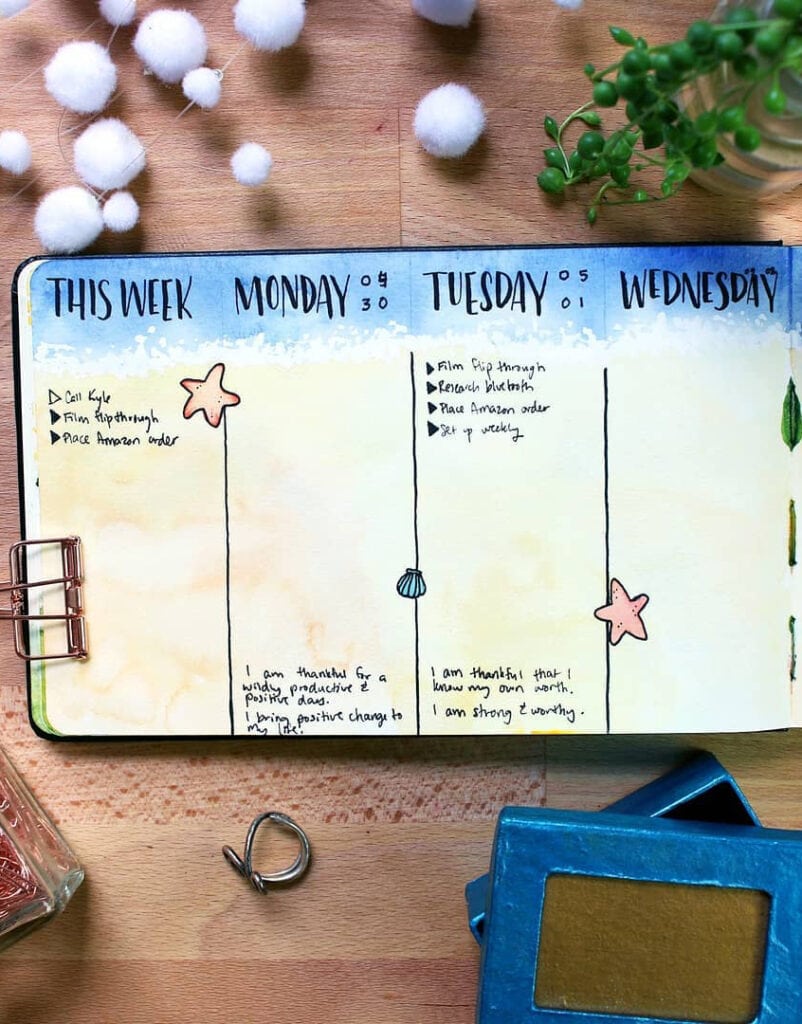 THIS WEEK
▷ Call Kyle
▶ Film flipthrough
▶ Place Amazon order
MONDAY 04
30
I am thankful for a
wildly productive &
positive days.
I bring positive change to
my life.
TUESDAY 05
01
▶ Film flip through
▶ Research bluetooth
▶ Place Amazon order
▶ Set up weekly
I am thankful that I
know my own worth.
I am strong & worthy.
WEDNESDAY